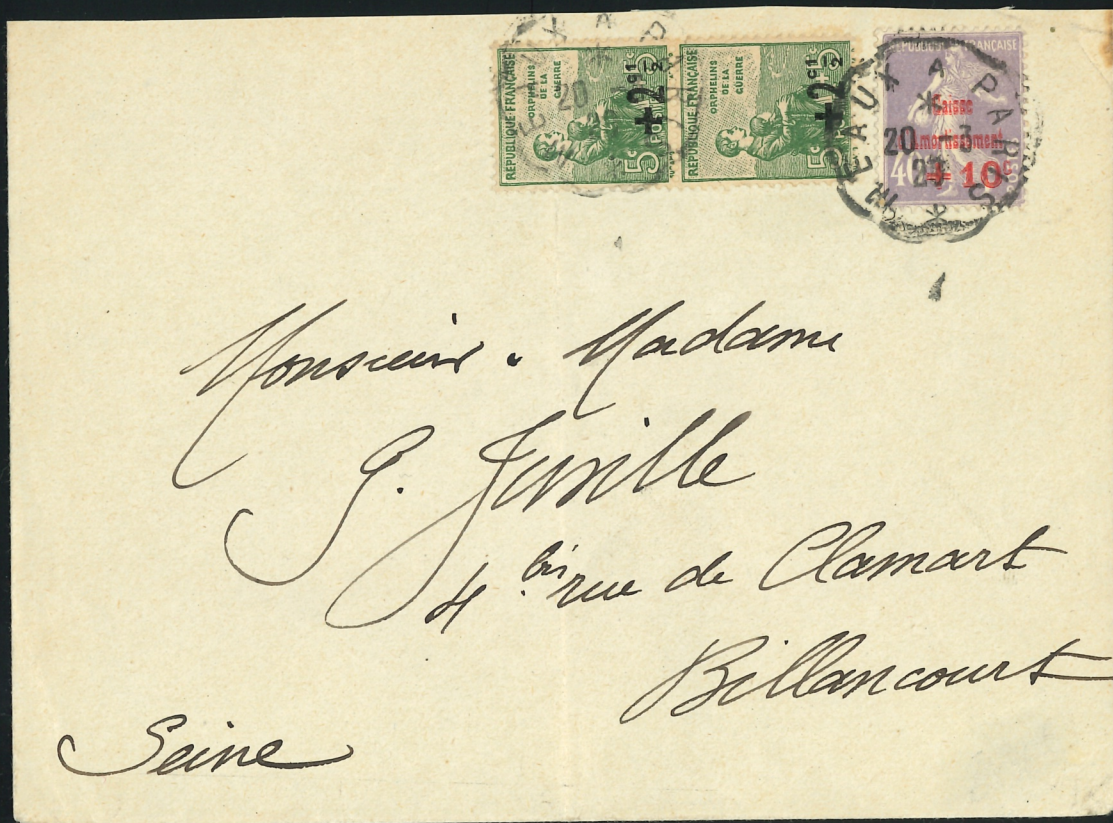 REPUBLIQUE FRANÇAISE
ORPHELINS
DE LA
GUERRE
+2c 1/2
5c POSTES
REPUBLIQUE FRANÇAISE
ORPHELINS
DE LA
GUERRE
+2c 1/2
5c
REPUBLIQUE FRANÇAISE
Caisse
Amortissement
+10c
40 POSTES
MEAUX A PARIS
20 -3
Monsieur. Madame
4 bis rue de Clamart
Billancourt
Seine